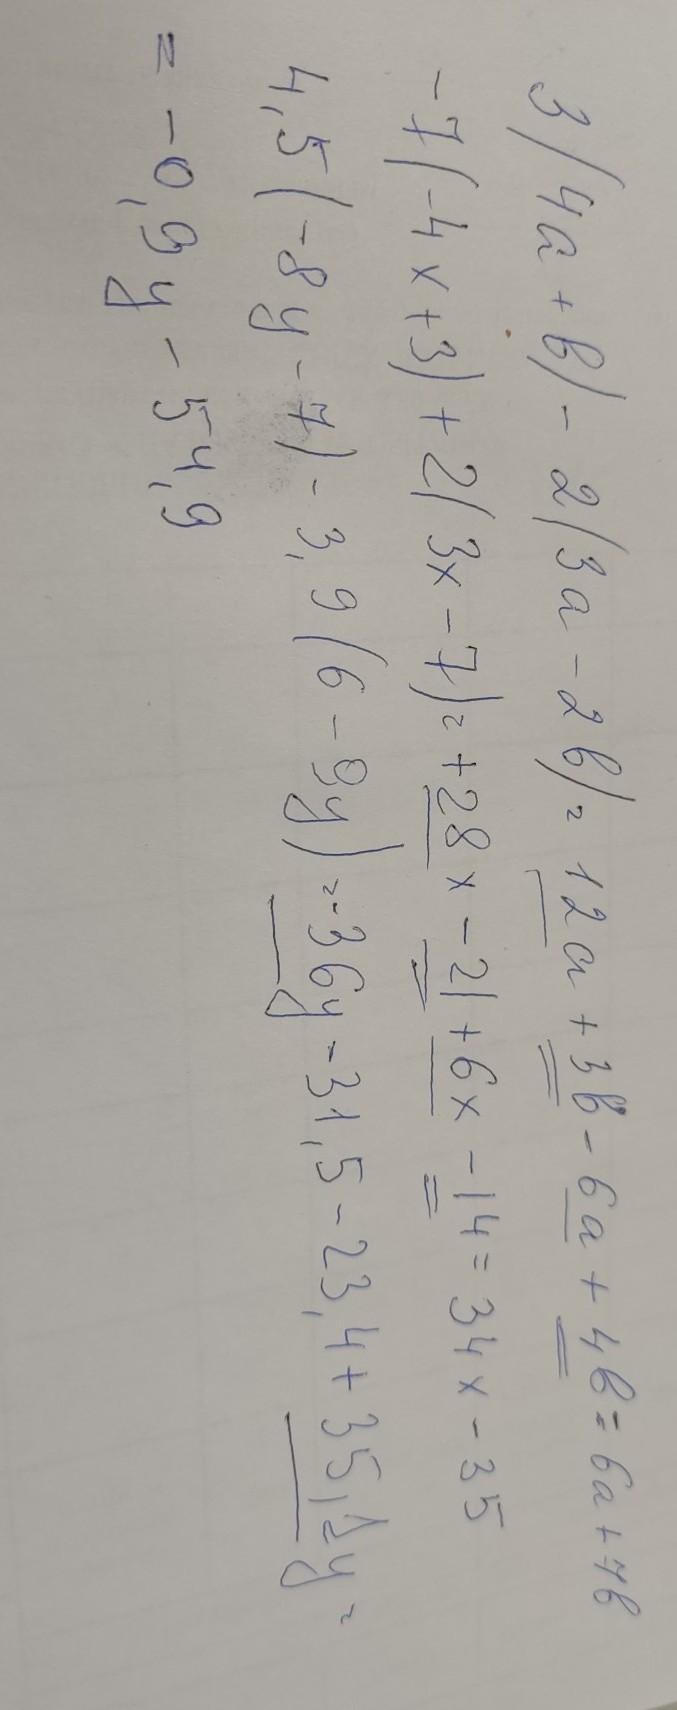 3(4a+b)-2(3a-2b)=12a+3b-6a+4b=6a+7b
-7(-4x+3)+2(3x-7)=+28x-21+6x-14=34x-35
4,5(-8y-7)-3,9(6-9y)=-36y-31,5-23,4+35,1y=
=-0,9y-54,9